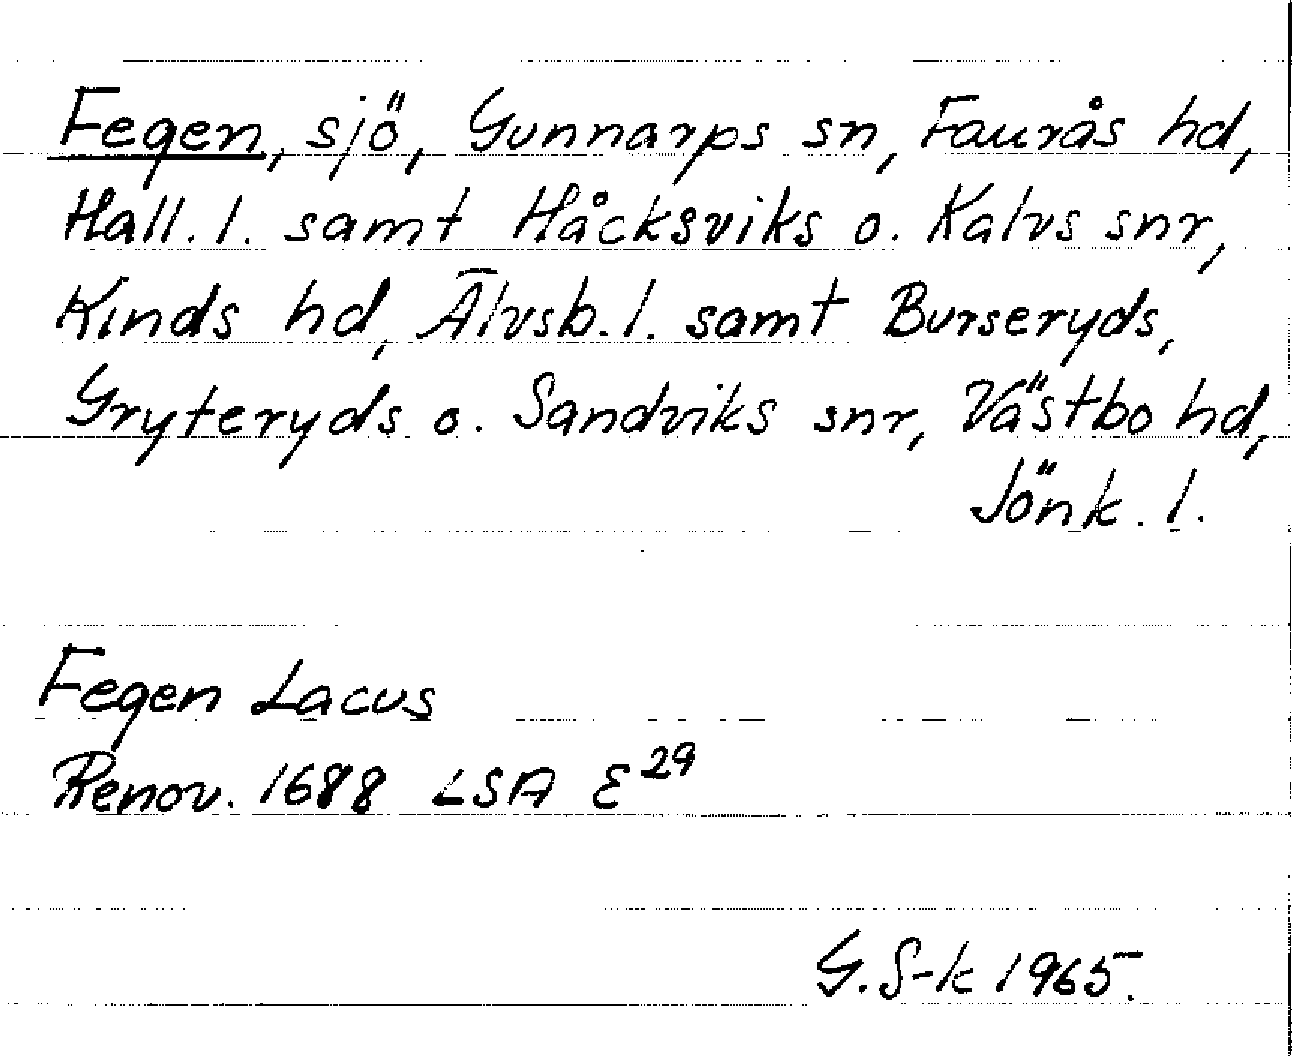 Fegen, sjö, Gunnarps sn, Faurås hd,
Hall. l. samt Håcksviks o. Kalvs snr,
Kinds hd, Älvsb. l. samt Burseryds,
Gryteryds o. Sandviks snr, Västbo hd,
Jönk. l.
Fegen Lacus
Renov. 1688 LSA E²⁹
G. S-k 1965.